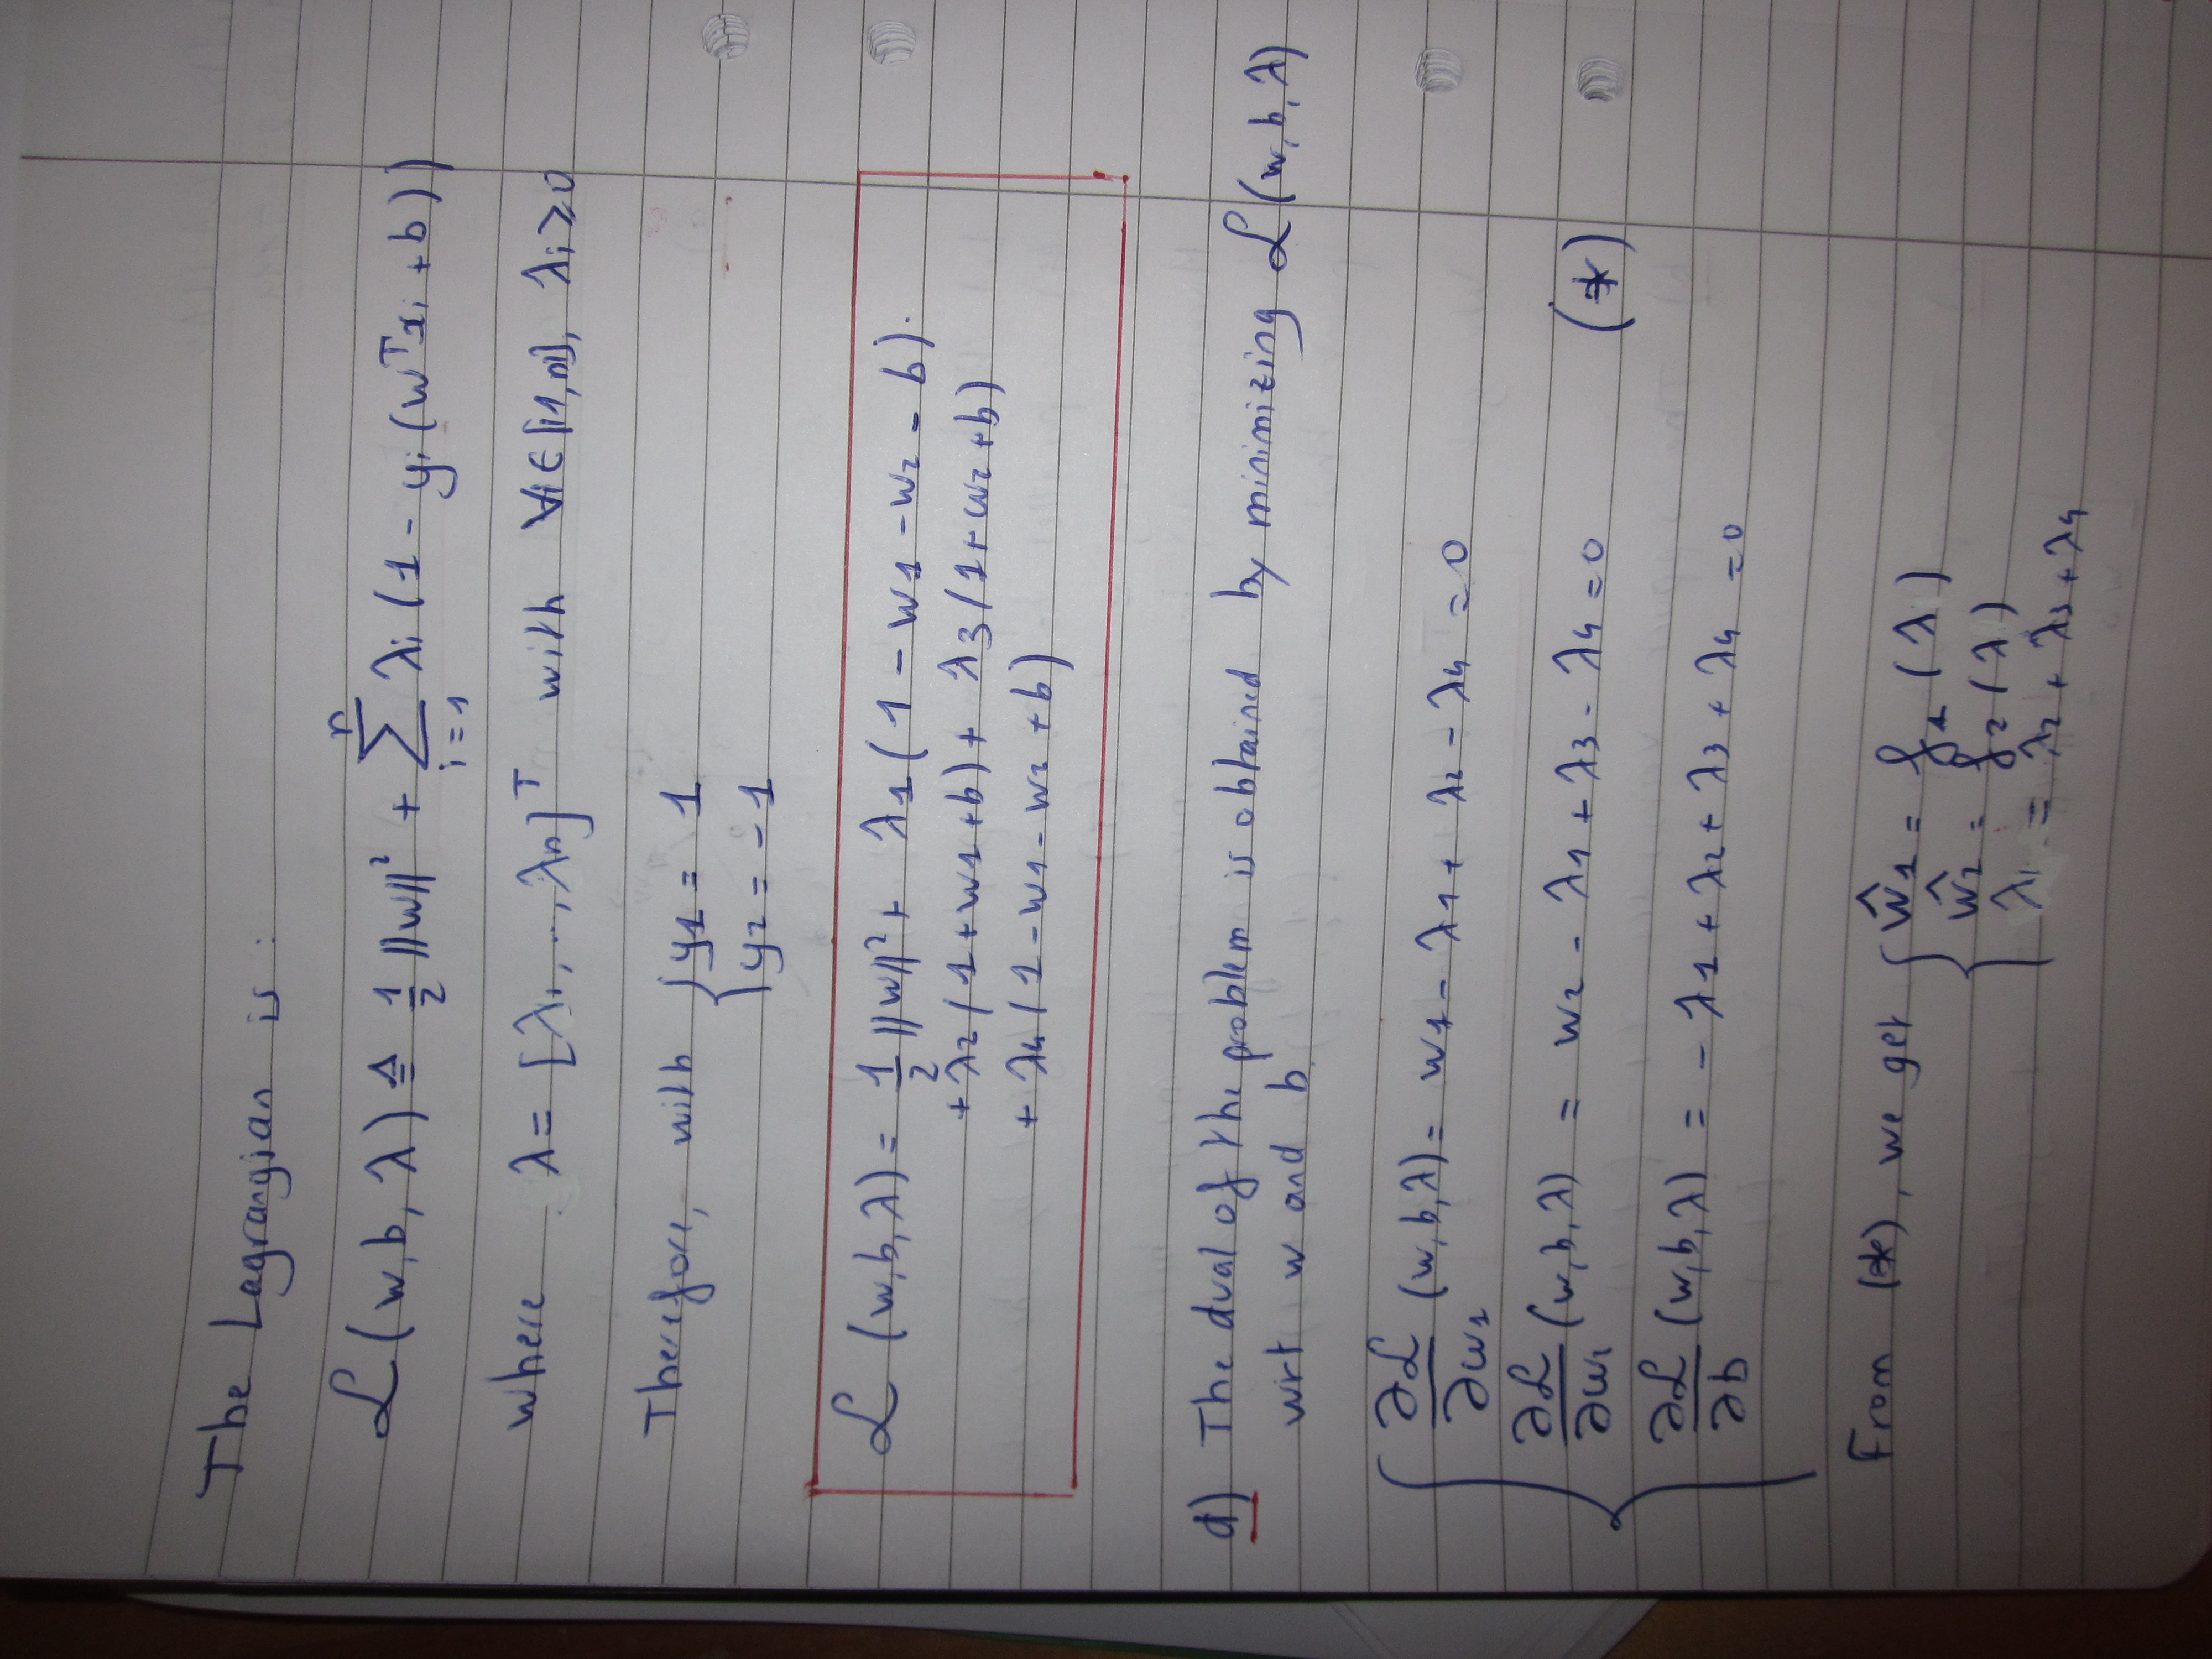 The Lagrangian is :
ℒ(w,b,λ) ≜ 1/2 ||w||² + ∑_{i=1}^{n} λi (1 - yi (wᵀxi + b))
where λ = [λ1, ..., λn]ᵀ with ∀i ∈ [|1,n|], λi ≥ 0
Therefore, with { y1 = 1
y2 = -1
ℒ(w,b,λ) = 1/2 ||w||² + λ1 (1 - w1 - w2 - b).
+ λ2 (1 + w1 + b) + λ3 (1 + w2 + b)
+ λ4 (1 - w1 - w2 + b)
d) The dual of the problem is obtained by minimizing ℒ(w,b,λ)
wrt w and b
∂ℒ/∂w1 (w,b,λ) = w1 - λ1 + λ2 - λ4 = 0
∂ℒ/∂w2 (w,b,λ) = w2 - λ1 + λ3 - λ4 = 0 (*)
∂ℒ/∂b (w,b,λ) = - λ1 + λ2 + λ3 + λ4 = 0
From (*), we get { ŵ1 = g1 (λ)
ŵ2 = g2 (λ)
λ1 = λ2 + λ3 + λ4